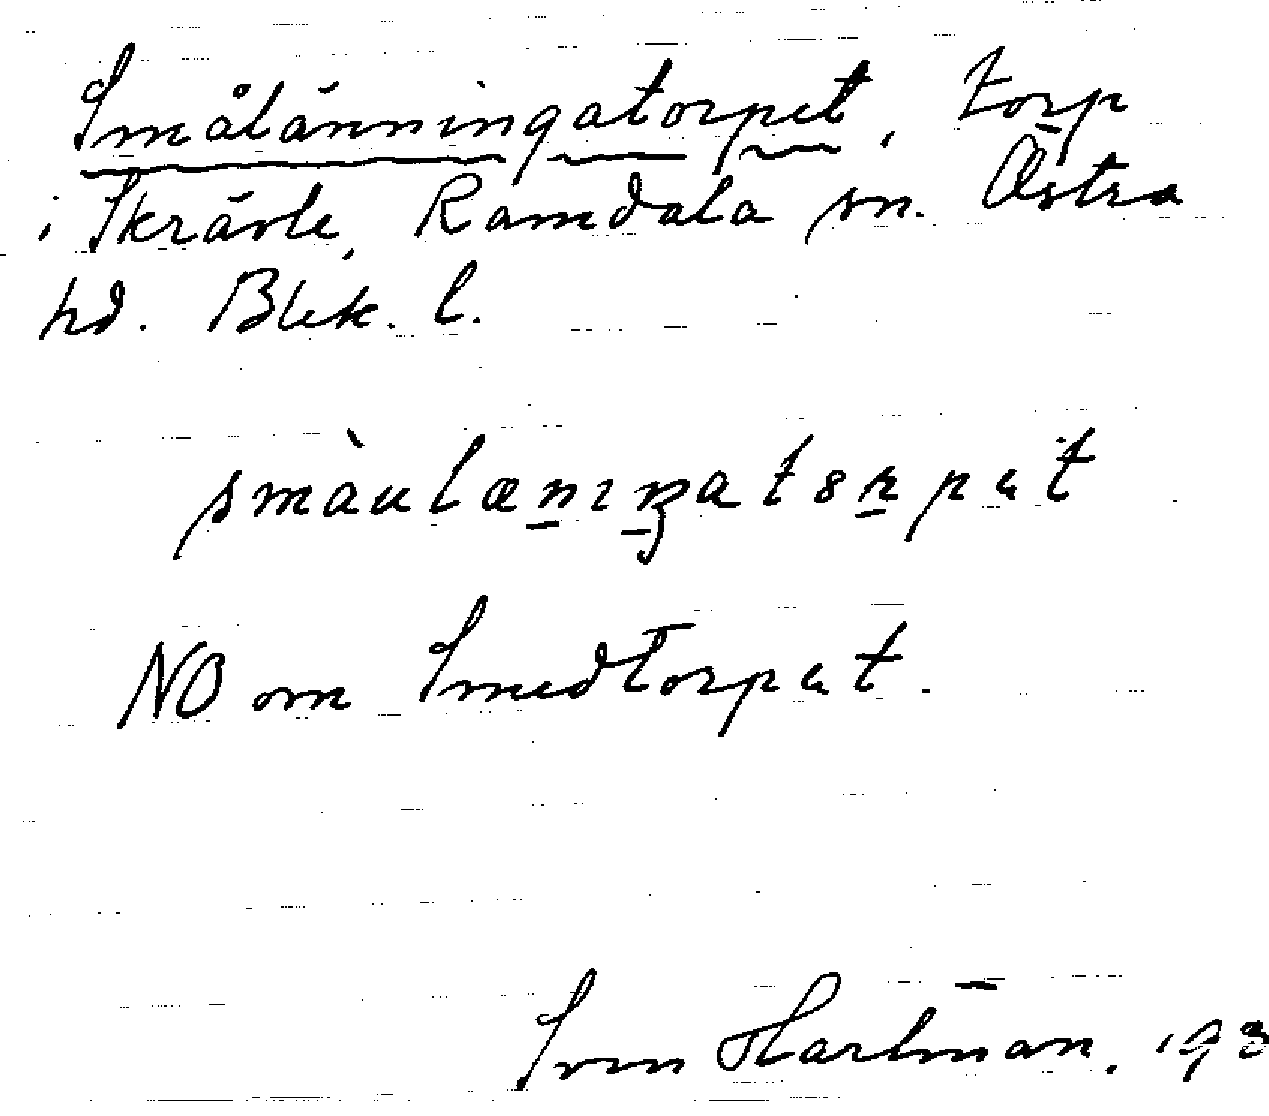 Smålänningatorpet, torp
i Skrävle, Ramdala sn. Östra
hd. Blek. l.
NO om Smedtorpet.
Sven Hartman, 193